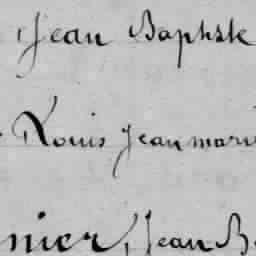 Jean Baptiste
Louis Jean mari
nier, Jean B